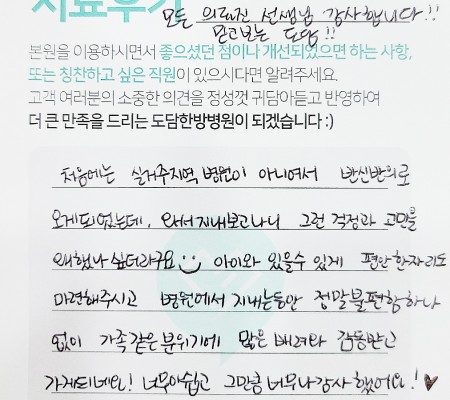 치료후기
모든 의료진 선생님 감사합니다!!
믿고보는 도담!!
본원을 이용하시면서 좋으셨던 점이나 개선되었으면 하는 사항,
또는 칭찬하고 싶은 직원이 있으시다면 알려주세요.
고객 여러분의 소중한 의견을 정성껏 귀담아듣고 반영하여
더 큰 만족을 드리는 도담한방병원이 되겠습니다 :)
처음에는 실거주지역 병원이 아니여서 반신반의로
오게되었는데, 와서 지내보고나니 그런 걱정과 고민을
왜했나 싶더라구요 아이와 있을수 있게 편안한자리도
마련해주시고 병원에서 지내는동안 정말불편함하나
없이 가족같은분위기에 많은 배려와 감동받고
가게되네요! 너무아쉽고 그만큼 너무나감사했어요!♥